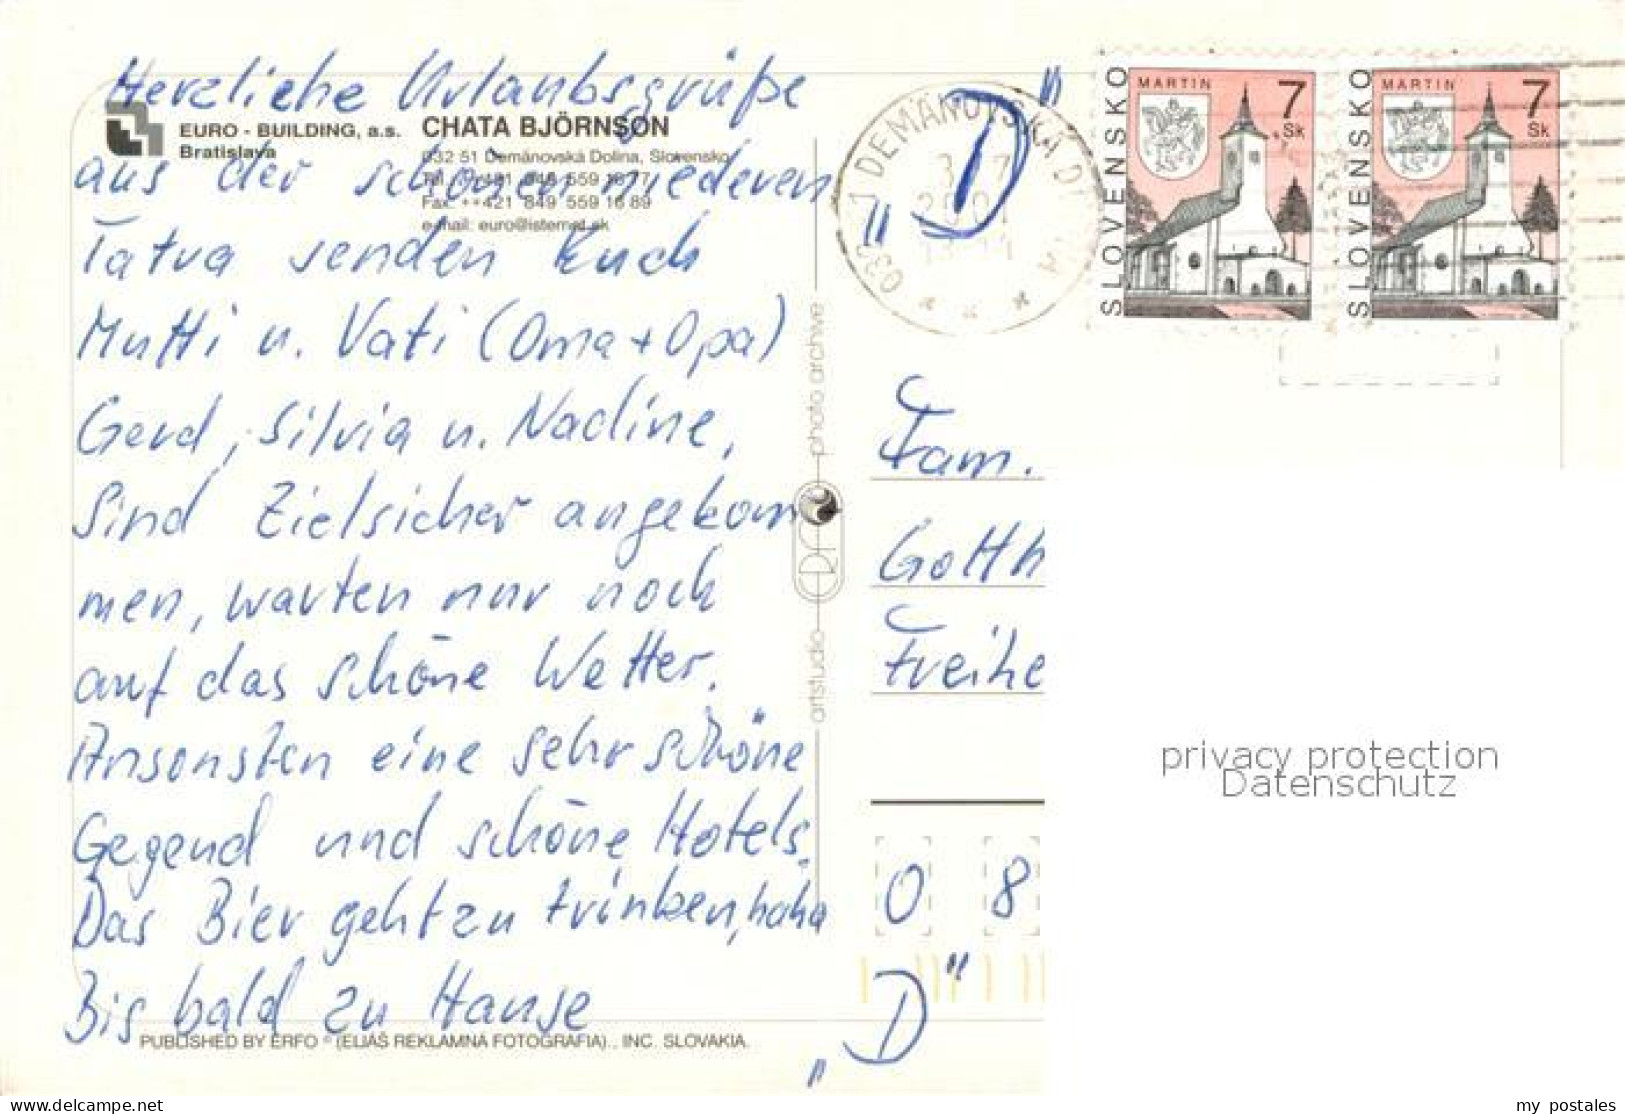 Herzliche Urlaubsgrüße
EURO - BUILDING, a.s.
Bratislava
CHATA BJÖRNSON
032 51 Demänovská Dolina, Slovensko
Fax: ++421 849 559 16 89
e-mail: euro@isternet.sk
aus der schönen niederen
Tatra senden Euch
Mutti u. Vati (Oma + Opa)
Gerd, Silvia u. Nadine,
Sind Zielsicher angekom
men, warten nur noch
auf das schöne Wetter.
Ansonsten eine sehr schöne
Gegend und schöne Hotels.
Das Bier geht zu trinken, haha
Bis bald zu Hause
PUBLISHED BY ERFO © (ELIÁŠ REKLAMNÁ FOTOGRAFIA)., INC. SLOVAKIA.
artstudio
ERFO
photo archive
"D"
DEMÄNOVSKÁ DOLINA
SLOVENSKO
MARTIN
7
Sk
SLOVENSKO
MARTIN
7
Sk
Fam.
Gotth
Freihe
0 8
"D"
privacy protection
Datenschutz
delcampe.net
my_postales